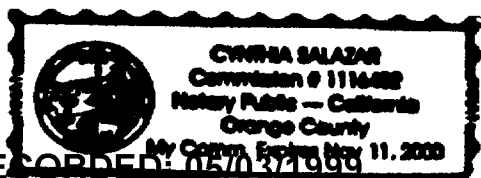 CYNTHIA SALAZAR
Commission # 1116482
Notary Public — California
Orange County
My Comm. Expires Nov 11, 2000
RECORDED: 05/03/1999